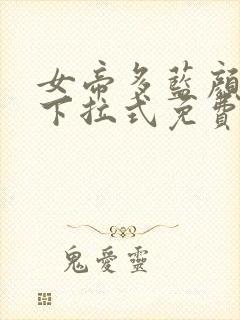 女帝多藍顏
下拉式免費
鬼愛靈